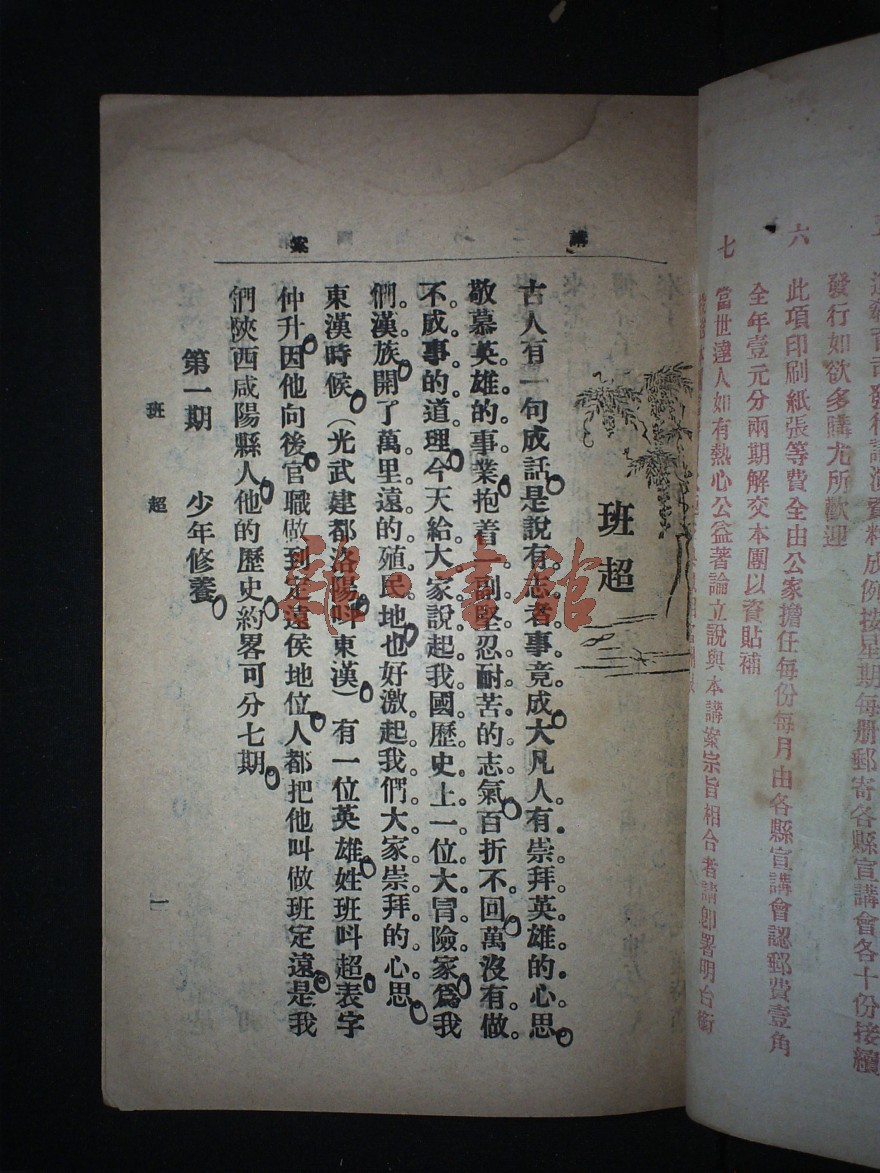 發行如欲多購尤所歡迎
六 此項印刷紙張等費全由公家擔任每份每月由各縣宣講會認郵費壹角
全年壹元分兩期解交本團以資貼補
七 當世達人如有熱心公益著論立說與本講案宗旨相合者請卽署明台銜
講案
班超
古人有一句成話是說有志者事竟成大凡人有崇拜英雄的心思
敬慕英雄的事業抱着一副堅忍耐苦的志氣百折不回萬沒有做
不成事的道理今天給大家說起我國歷史上一位大冒險家爲我
們漢族開了萬里遠的殖民地也好激起我們大家崇拜的心思
東漢時候(光武建都洛陽叫東漢)有一位英雄姓班叫超表字
仲升因他向後官職做到定遠侯地位人都把他叫做班定遠是我
們陝西咸陽縣人他的歷史約畧可分七期
第一期 少年修養
班超 一